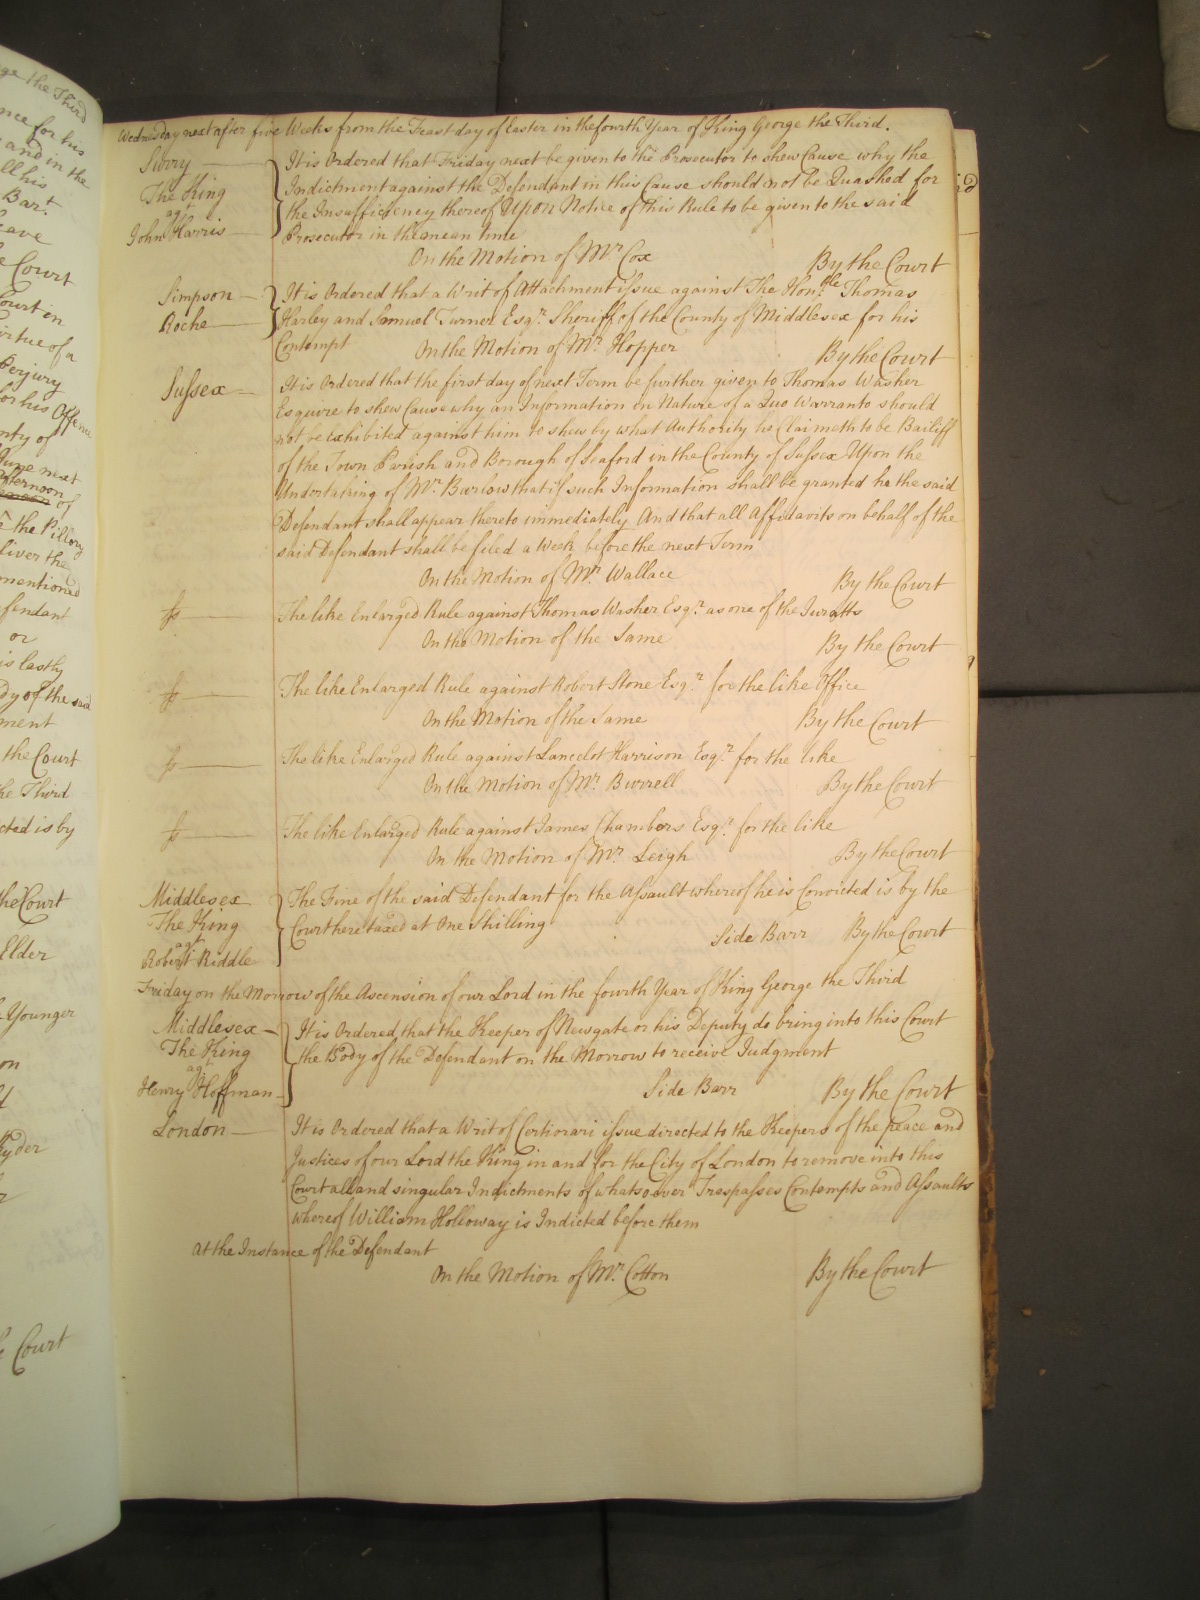 ge the Third
nce for his
and in the
ll his
Bart.
eave
e Court
Court in
irtue of a
Perjury
for his Offence
nty of
June next
fternoon
of
the Pillory
liver the
mentioned
fendant
or
is lastly
dy of the said
ment
the Court
he Third
cted is by
he Court
Elder
Younger
on
yder
r
Court
Wednesday next after five Weeks from the Feast day of Easter in the fourth Year of King George the Third.
Surry
The King
agt
John Harris
It is Ordered that Friday next be given to the Prosecutor to shew Cause why the
Indictment against the Defendant in this Cause should not be Quashed for
the Insufficiency thereof Upon Notice of this Rule to be given to the said
Prosecutor in the mean time
On the Motion of Mr. Cox By the Court
Simpson
Roche
It is Ordered that a Writ of Attachment issue against The Honble. Thomas
Harley and Samuel Turner Esqr. Sheriff of the County of Middlesex for his
Contempt On the Motion of Mr. Hopper By the Court
Sussex
It is Ordered that the first day of next Term be further given to Thomas Washer
Esquire to shew Cause why an Information in Nature of a Quo Warranto should
not be exhibited against him to shew by what Authority he Claimeth to be Bailiff
of the Town Parish and Borough of Seaford in the County of Sussex Upon the
Undertaking of Mr. Barlow that if such Information shall be granted he the said
Defendant shall appear thereto immediately And that all Affidavits on behalf of the
said Defendant shall be filed a Week before the next Term
On the Motion of Mr. Wallace By the Court
The like Enlarged Rule against Thomas Washer Esqr. as one of the Juratts
On the Motion of the Same By the Court
The like Enlarged Rule against Robert Stone Esqr. for the like Office
On the Motion of the Same By the Court
The like Enlarged Rule against Lancelot Harrison Esqr. for the like
On the Motion of Mr. Burrell By the Court
The like Enlarged Rule against James Chambers Esqr. for the like
On the Motion of Mr. Leigh By the Court
Middlesex
The King
agt
Robert Riddle
The Fine of the said Defendant for the Assault whereof he is Convicted is by the
Court here taxed at One Shilling
Side Barr By the Court
Friday on the Morrow of the Ascension of our Lord in the fourth Year of King George the Third
Middlesex
The King
agt
Henry Hoffman
It is Ordered that the Keeper of Newgate or his Deputy do bring into this Court
the Body of the Defendant on the Morrow to receive Judgment
Side Barr By the Court
London
It is Ordered that a Writ of Certiorari issue directed to the Keepers of the peace and
Justices of our Lord the King in and for the City of London to remove into this
Court all and singular Indictments of whatsoever Trespasses Contempts and Assaults
whereof William Holloway is Indicted before them
At the Instance of the Defendant
On the Motion of Mr. Cotton By the Court